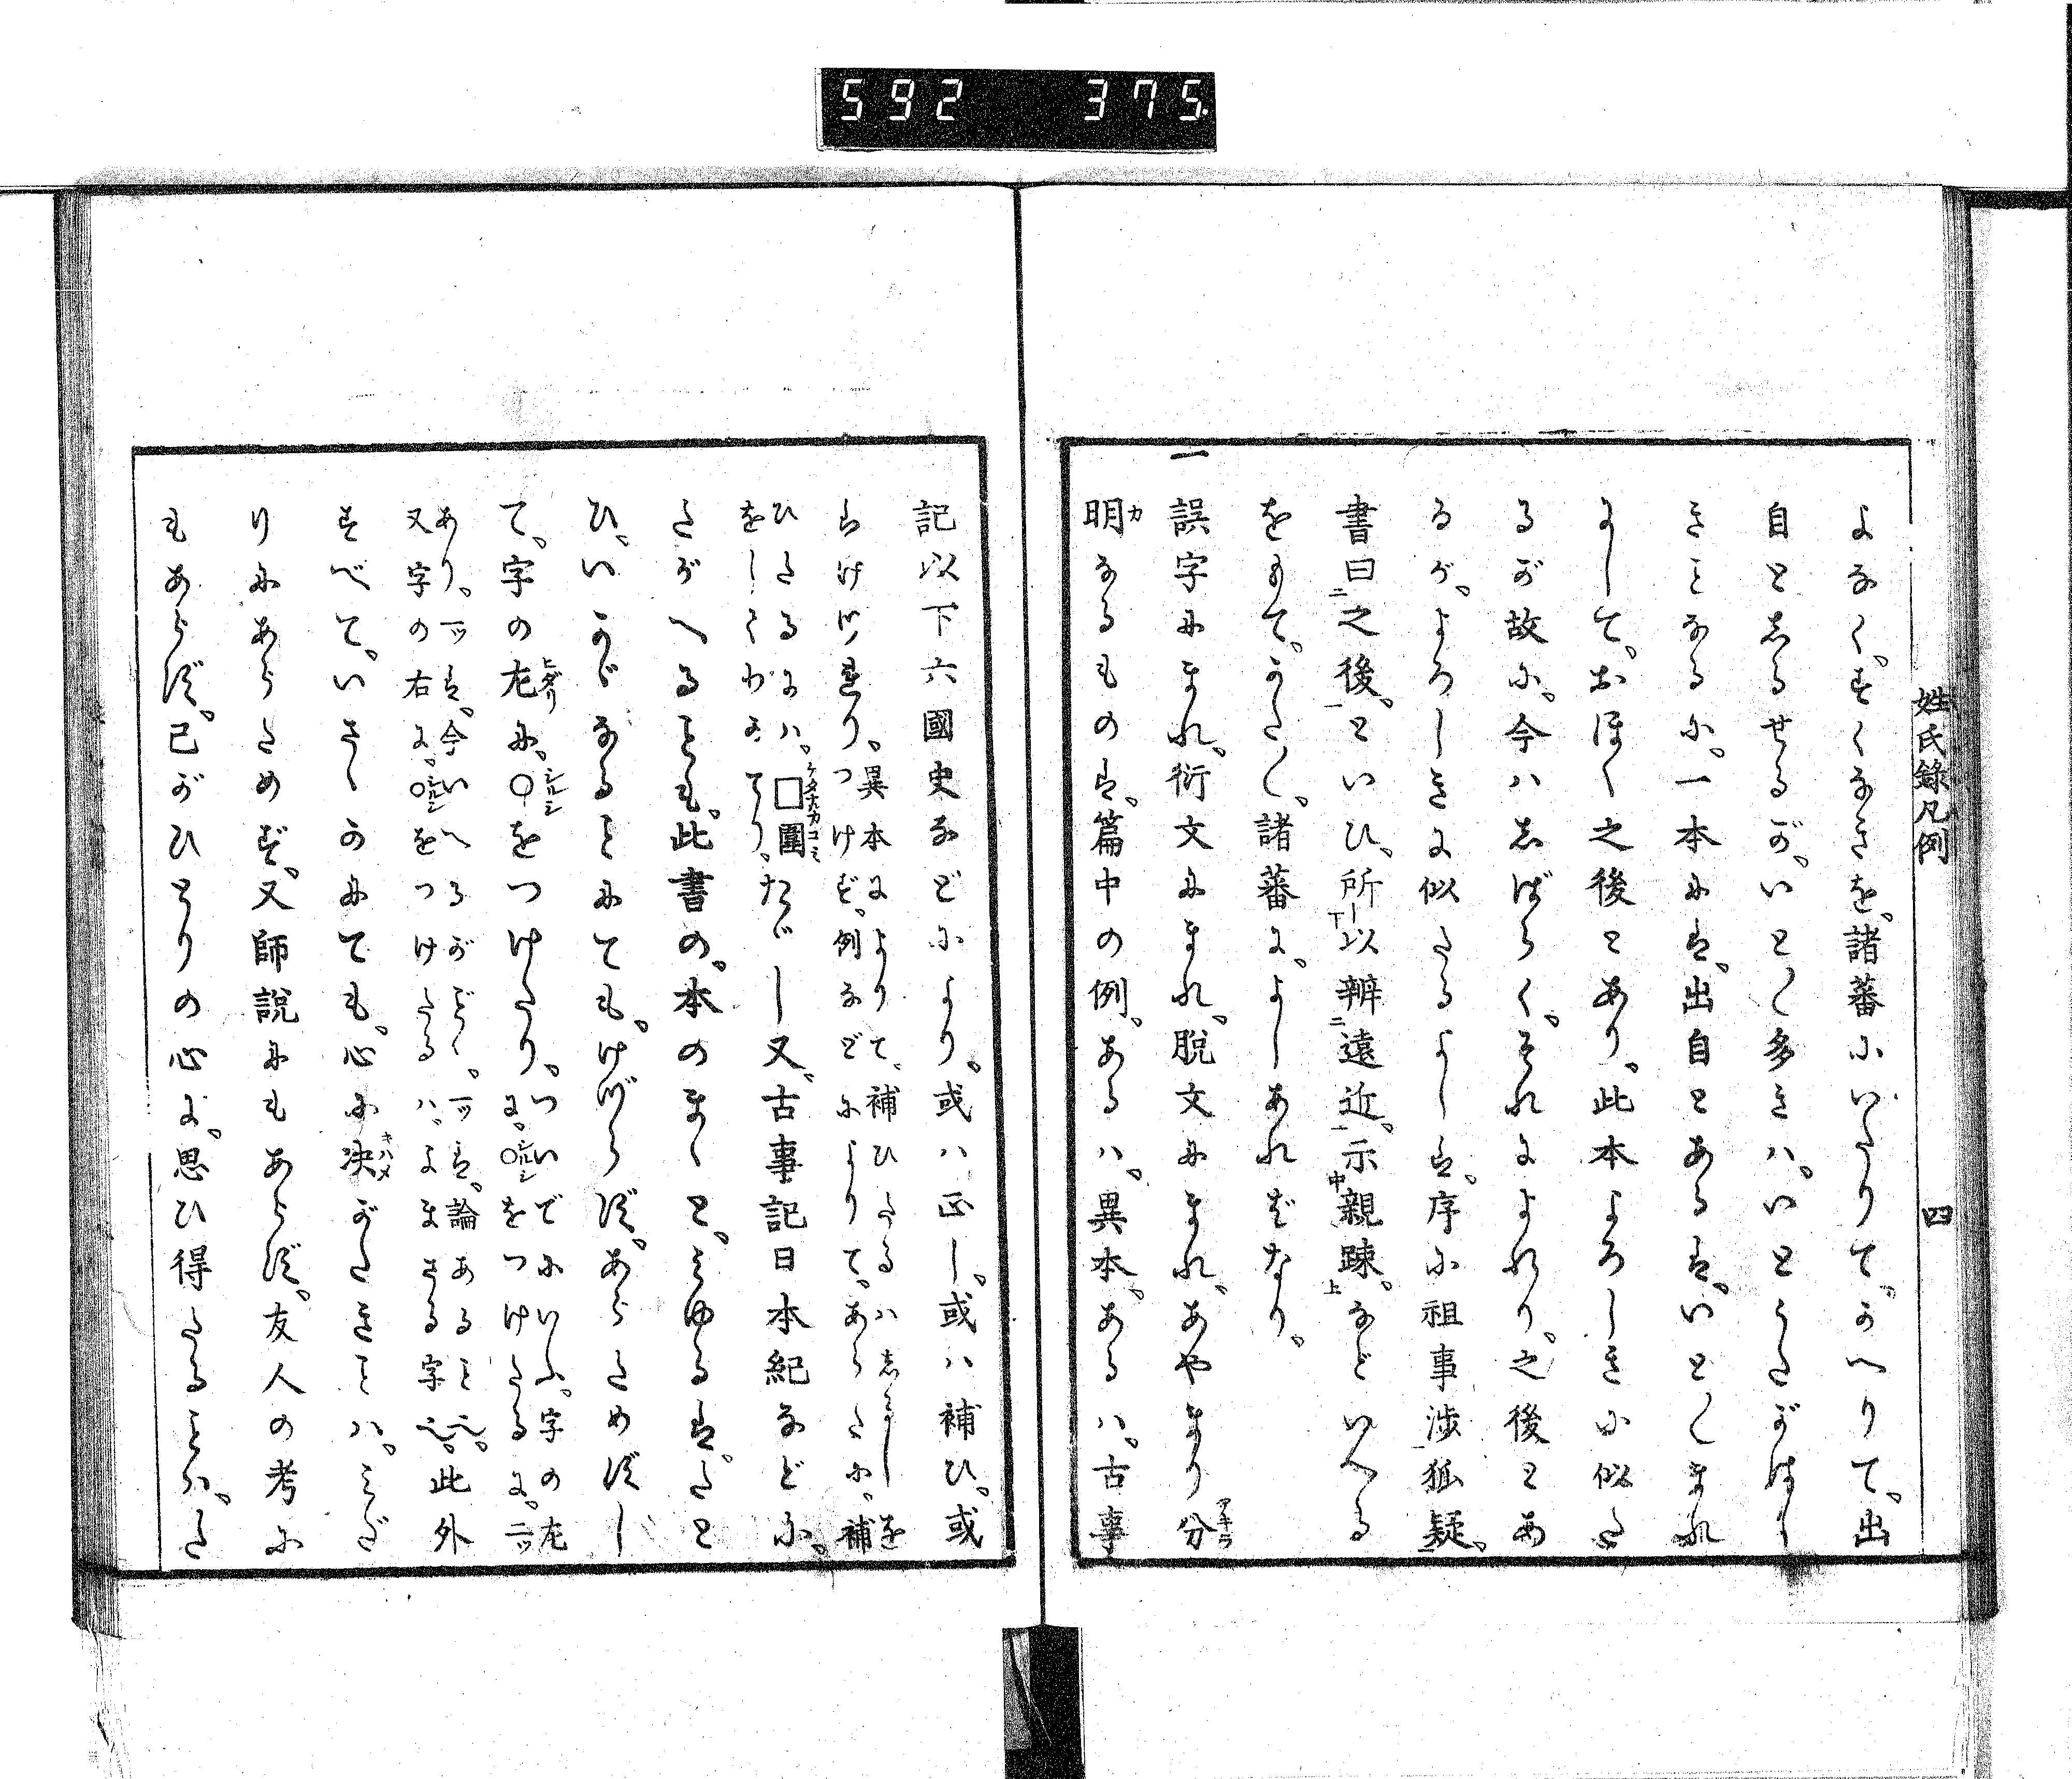 592 375
姓氏錄凡例 四
よなく、すくなきを、諸蕃にいたりて、かへりて、出
自としるせるが、いと〳〵多きハ、いとうたがはし
きことなるに、一本には、出自とあるは、いと〳〵まれ
にして、おほく之後とあり、此本よろしきに似た
るが故に、今ハしばらく、それによれり、之後とあ
るが、よろしきに似たるよしは、序に祖事渉狐疑、
書曰二之後一、といひ、所下以辨二遠近一、示中親疎上、などいへる
をもて、うた〳〵、諸蕃に、よしあればなり、
一誤字にまれ、衍文にまれ、脱文にまれ、あやまり分
明カなるものは、篇中の例、あるハ、異本、あるハ、古事
記以下六國史などにより、或ハ正し、或ハ補ひ、或
はけづれり、異本によりて、補ひたるハしるしを
つけず、例などによりて、あらたに、補
ひたるにハ、□圍ケタナカコミ
をしてわかてり、たゞし又、古事記日本紀などに、
たがへることも、此書の、本のまゝと、みゆるは、たと
ひ、いかゞなることにても、けづらず、あらためずし
て、字の左ヒダリに、○シルシをつけたり、ついでにいふ、字の左
に、○シルシをつけたるに、二ツ
あり、一ツは、今いへるがごとく、一ツは、論あるとて也、
又字の右に、○シルシをつけたるハ、よみまさる字也、此外
すべて、いさゝかにても、心に決キハメがたきことハ、みだ
りにあらためず、又師説にもあらず、友人の考に
もあらず、己がひとりの心に、思ひ得たることハ、た